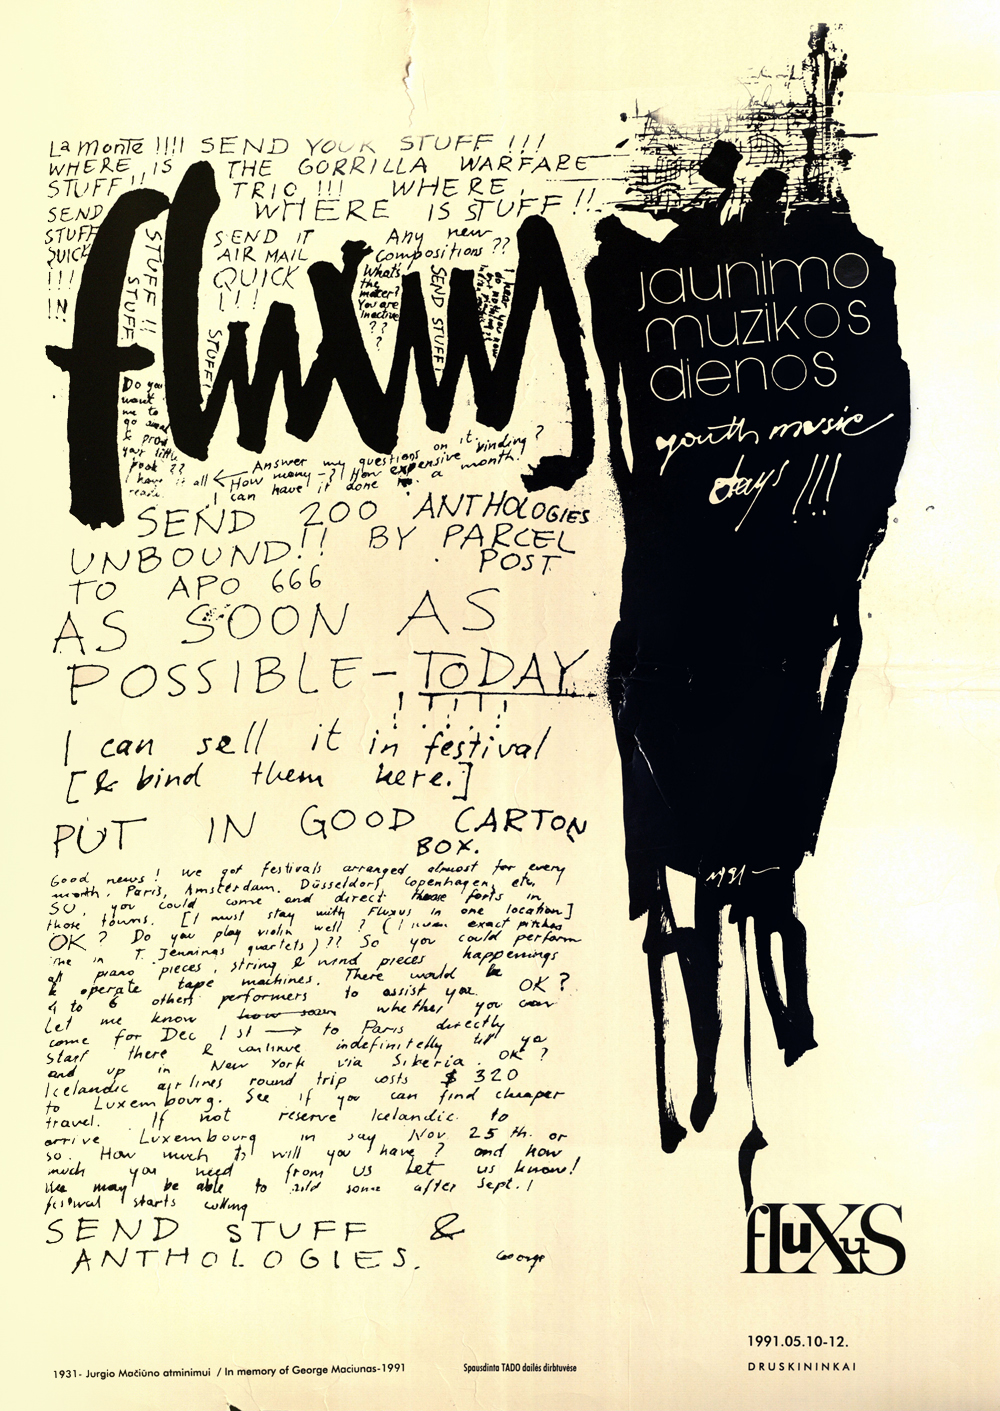 La Monte !!!! SEND YOUR STUFF !!!
WHERE IS THE GORRILLA WARFARE
STUFF!!! TRIO !!! WHERE,
SEND WHERE IS STUFF !!
STUFF
QUICK
!!!
IN
STUFF !!
STUFF
SEND IT
AIR MAIL
QUICK
!!!
STUFF!
Any new
compositions ??
Whats
the
matter?
You are
inactive
??
?
SEND STUFF!
fluxus
Do you
want
me to
go
&
your little
book ??
I have it all
Answer my questions on it.
How many -? How expensive binding?
I can have it done in a month.
SEND 200 ANTHOLOGIES
UNBOUND!! BY PARCEL
POST
TO APO 666
AS SOON AS
POSSIBLE - TODAY
!!!!!
I can sell it in festival
[& bind them here.]
PUT IN GOOD CARTON
BOX.
Good news! we got festivals arranged almost for every
month. Paris, Amsterdam. Düsseldorf, Copenhagen, etc.
SO, you could come and direct those forts in
those towns. [I must stay with Fluxus in one location]
OK? Do you play violin well? ( exact pitches
me in T. Jennings quartets)?? So you could perform
all piano pieces, string & wind pieces happenings
& operate tape machines. There would be
4 to 6 others performers to assist you. OK?
Let me know how soon whether you can
come for Dec 1st → to Paris directly
start there & continue indefinitelly till
and up in New York via Siberia. OK?
Icelandic airlines round trip costs $ 320
to Luxembourg. See if you can find cheaper
travel. If not reserve Icelandic to
arrive Luxembourg in say Nov. 25 th. or
so. How much will you have? and how
much you need from us Let us know!
We may be able to some after Sept.!
festival starts
SEND STUFF &
ANTHOLOGIES.
George
jaunimo
muzikos
dienos
youth music
days !!!
1991 -
fluXuS
1991.05.10-12.
DRUSKININKAI
1931- Jurgio Mačiūno atminimui / In memory of George Maciunas-1991
Spausdinta TADO dailės dirbtuvėse